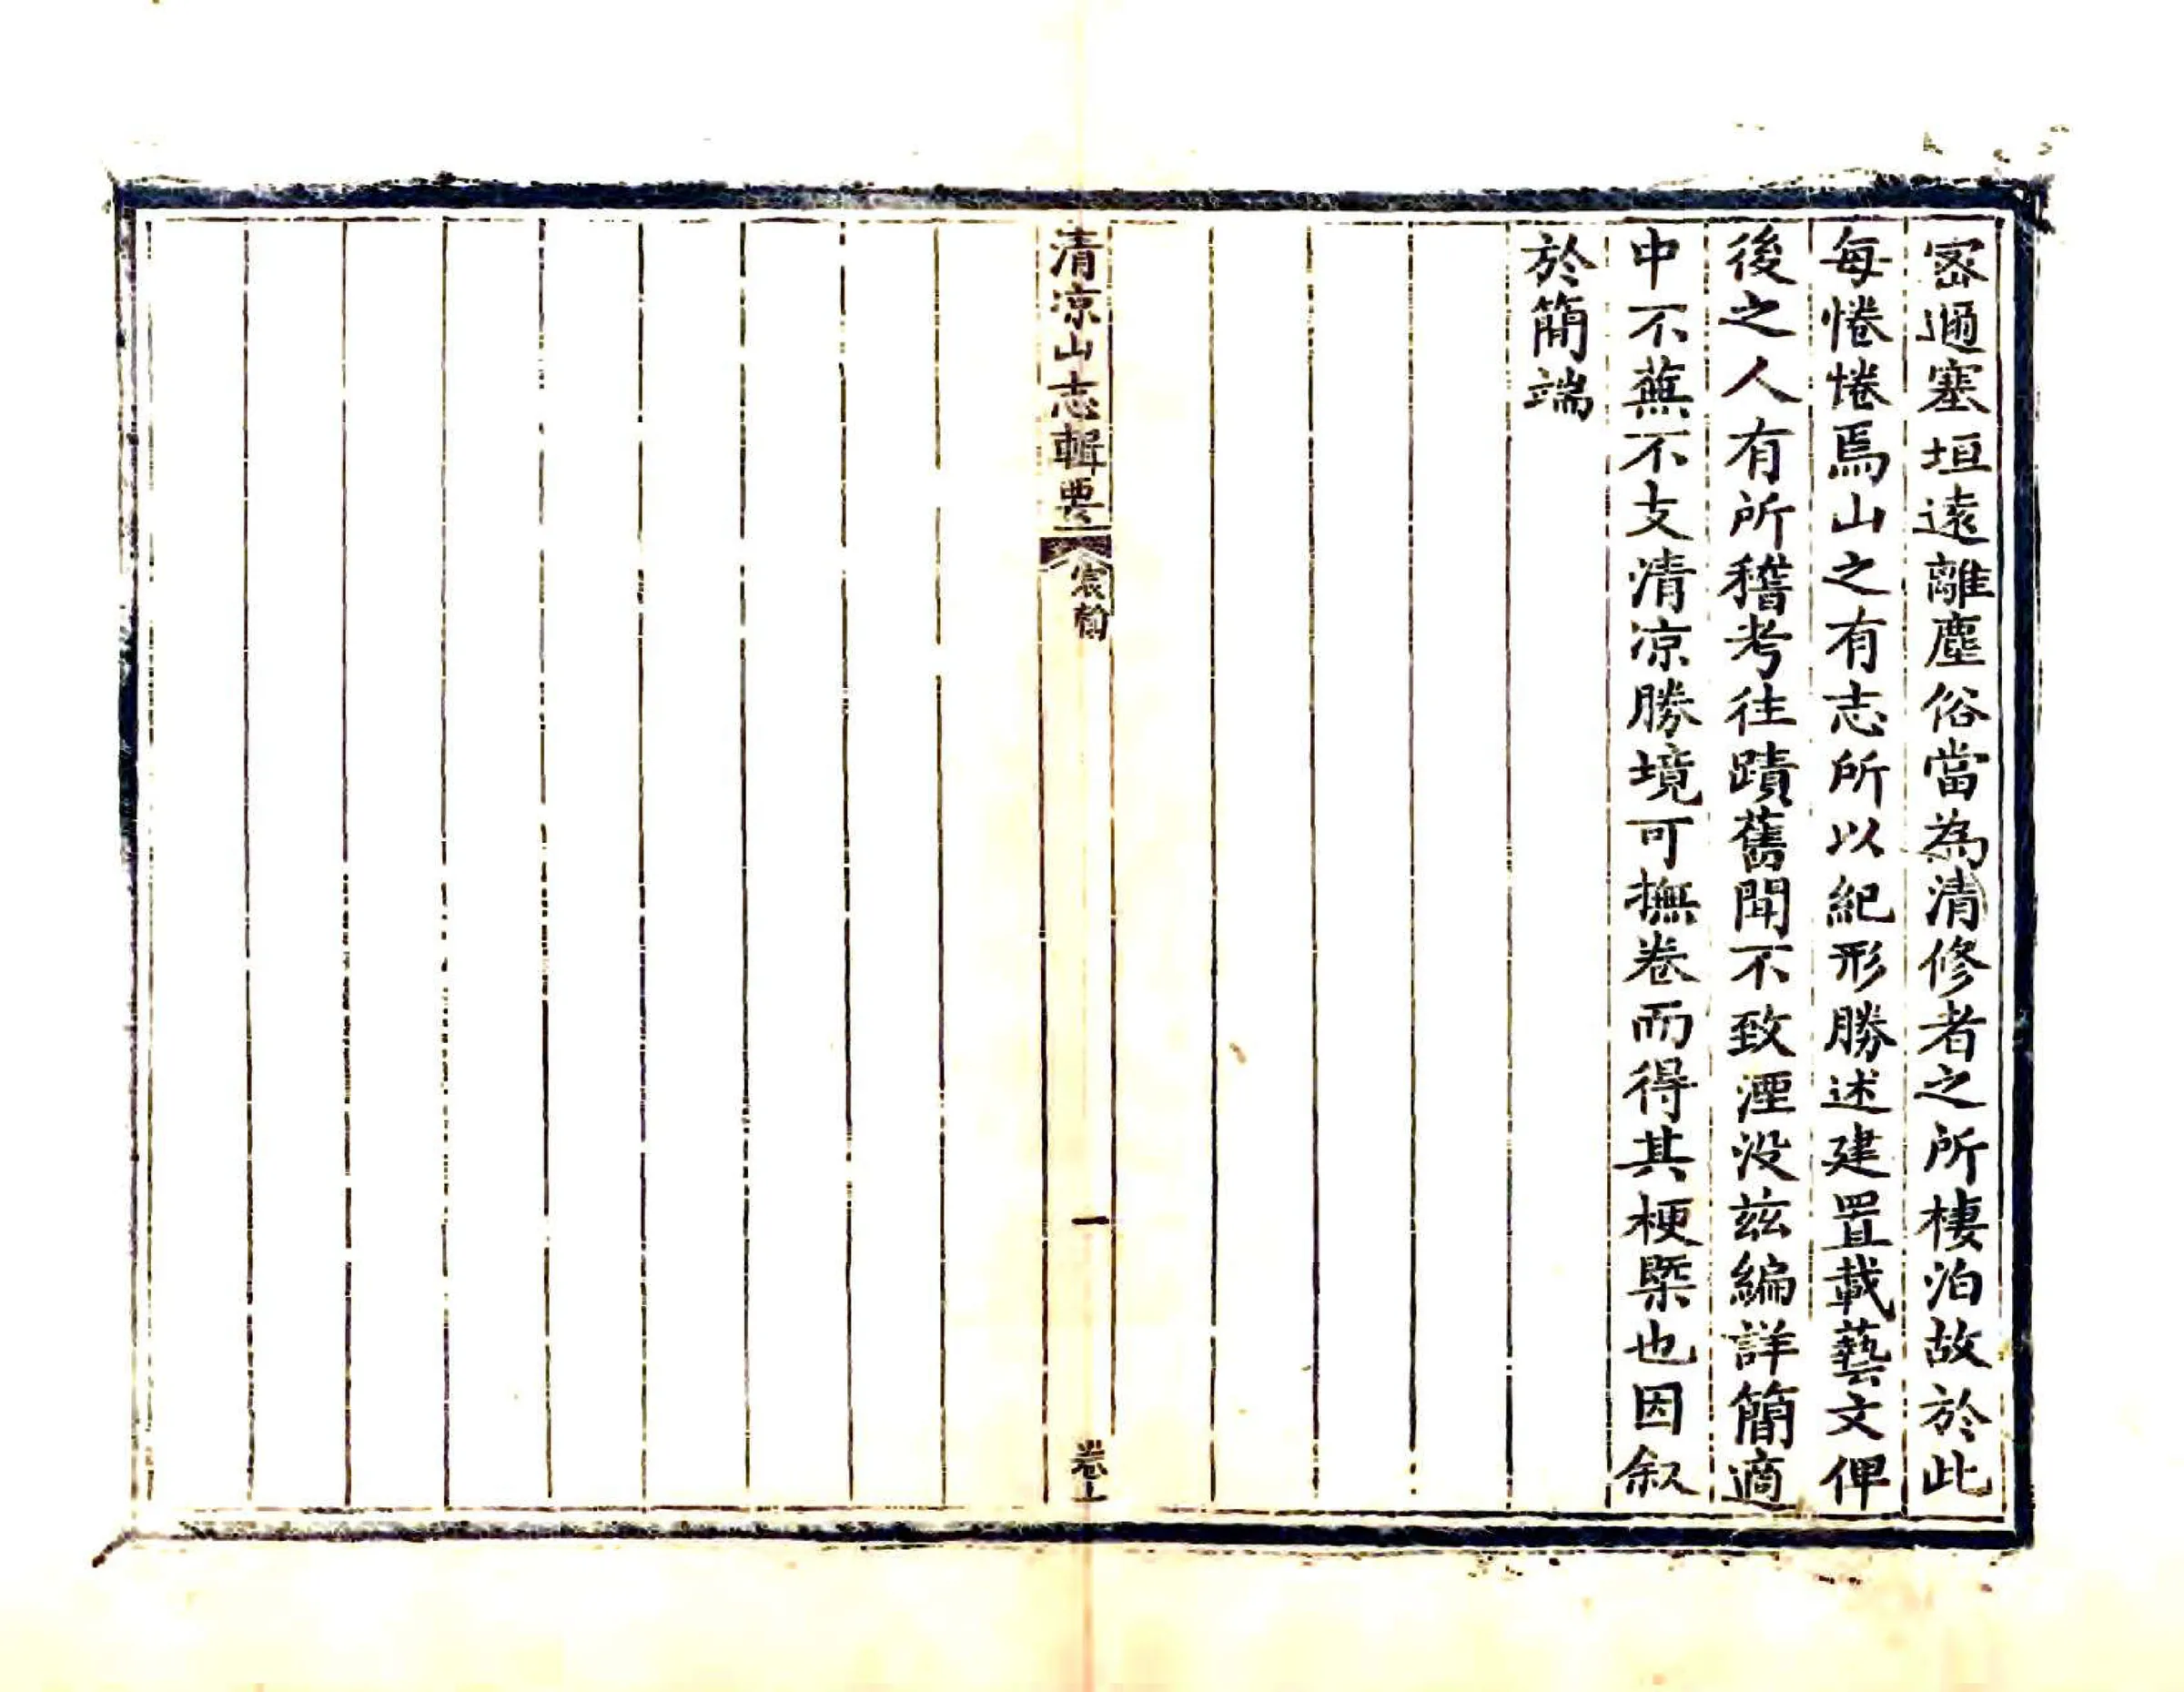 密邇塞垣遠離塵俗當為清修者之所棲泊故於此
每惓惓焉山之有志所以紀形勝述建置載藝文俾
後之人有所稽考往蹟舊聞不致湮没兹編詳簡適
中不蕪不支清涼勝境可撫卷而得其梗槩也因叙
於簡端
清凉山志輯要
宸翰
一
卷上